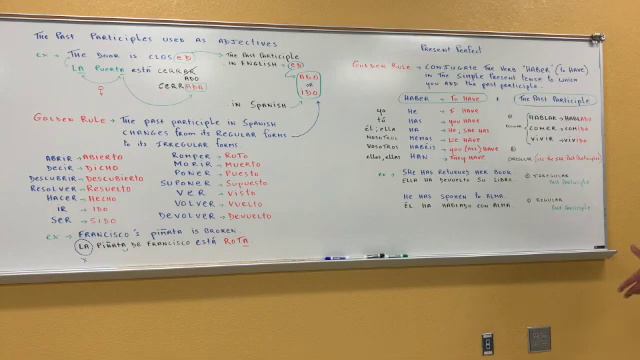 The Past Participles used as Adjectives
ex → The Door is closed → The Past Participle
in English → ed
La Puerta está cerrar
ado
cerrada
ado
or
ido
... in Spanish
Golden Rule → The past participle in Spanish
changes from its regular forms
to its irregular forms
Abrir → Abierto
Decir → Dicho
Descubrir → Descubierto
Resolver → Resuelto
Hacer → Hecho
Ir → Ido
Ser → Sido
Romper → Roto
Morir → Muerto
Poner → Puesto
Suponer → Supuesto
Ver → Visto
Volver → Vuelto
Devolver → Devuelto
ex → Francisco's piñata is broken
La piñata de Francisco está rota
Present Perfect
Golden Rule → Conjugate the verb "Haber" (to have)
in the simple present tense to which
you add the past participle.
Haber → To Have + The Past Participle
yo He → I have
tú Has → you have
él, ella Ha → He, she has
nosotros Hemos → We have
vosotros Habéis → you (all) have
ellos, ellas Han → They have
① Regular
Hablar → Hablado
Comer → Comido
Vivir → Vivido
② Irregular (use the same past participle)
ex → She has returned her book
Ella ha devuelto su libro
→ Irregular
Past Participle
He has spoken to Alma
Él ha hablado con Alma.
→ Regular
Past Participle